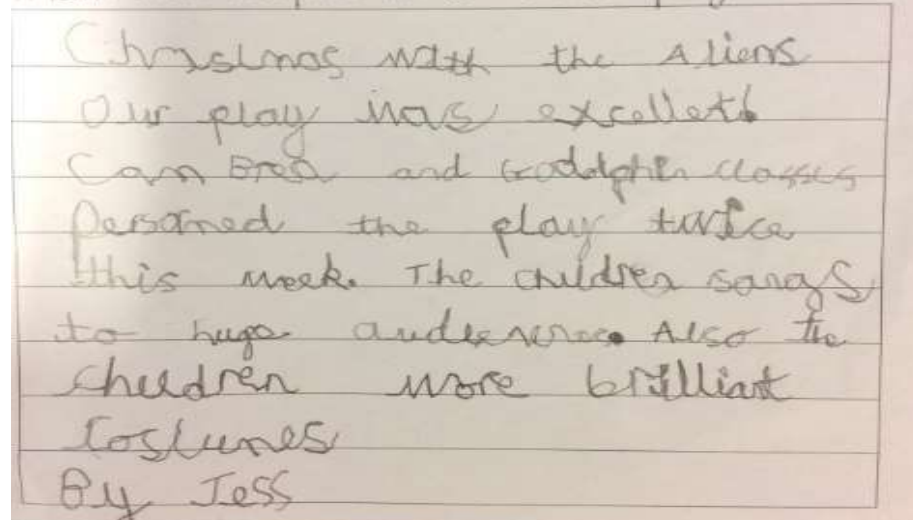 Christmas with the Aliens
Our play was excellent
Cam Brea and Godolphin classes
Persomed the play twice
this week. The children sang
to huge audiences. Also the
cheldren wore brilliant
Costumes
By Jess